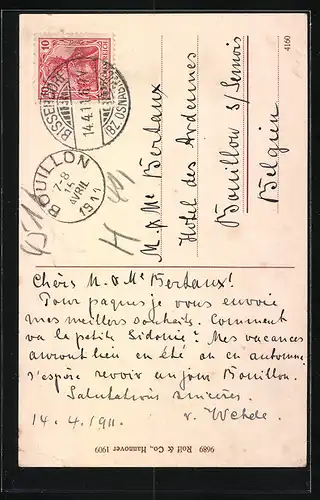 10
BISSENDORF
14.4.11
(BZ. OSNABRÜCK)
BOUILLON
7-8
14
AVRIL
1911
4160
M. & Me Bertaux
Hotel des Ardennes
Bouillon s/Semois
Belgien
Chèrs M. & Me Bertaux!
Pour paques je vous envoie
mes meillers souhaits. Comment
va la petite Sidonie? Mes vacances
auront lieu en été ou en automne
j'espère revoir un jour Bouillon.
Salutations sincères.
14. 4. 1911. v. Wehde.
9689 Rolf & Co., Hannover 1909